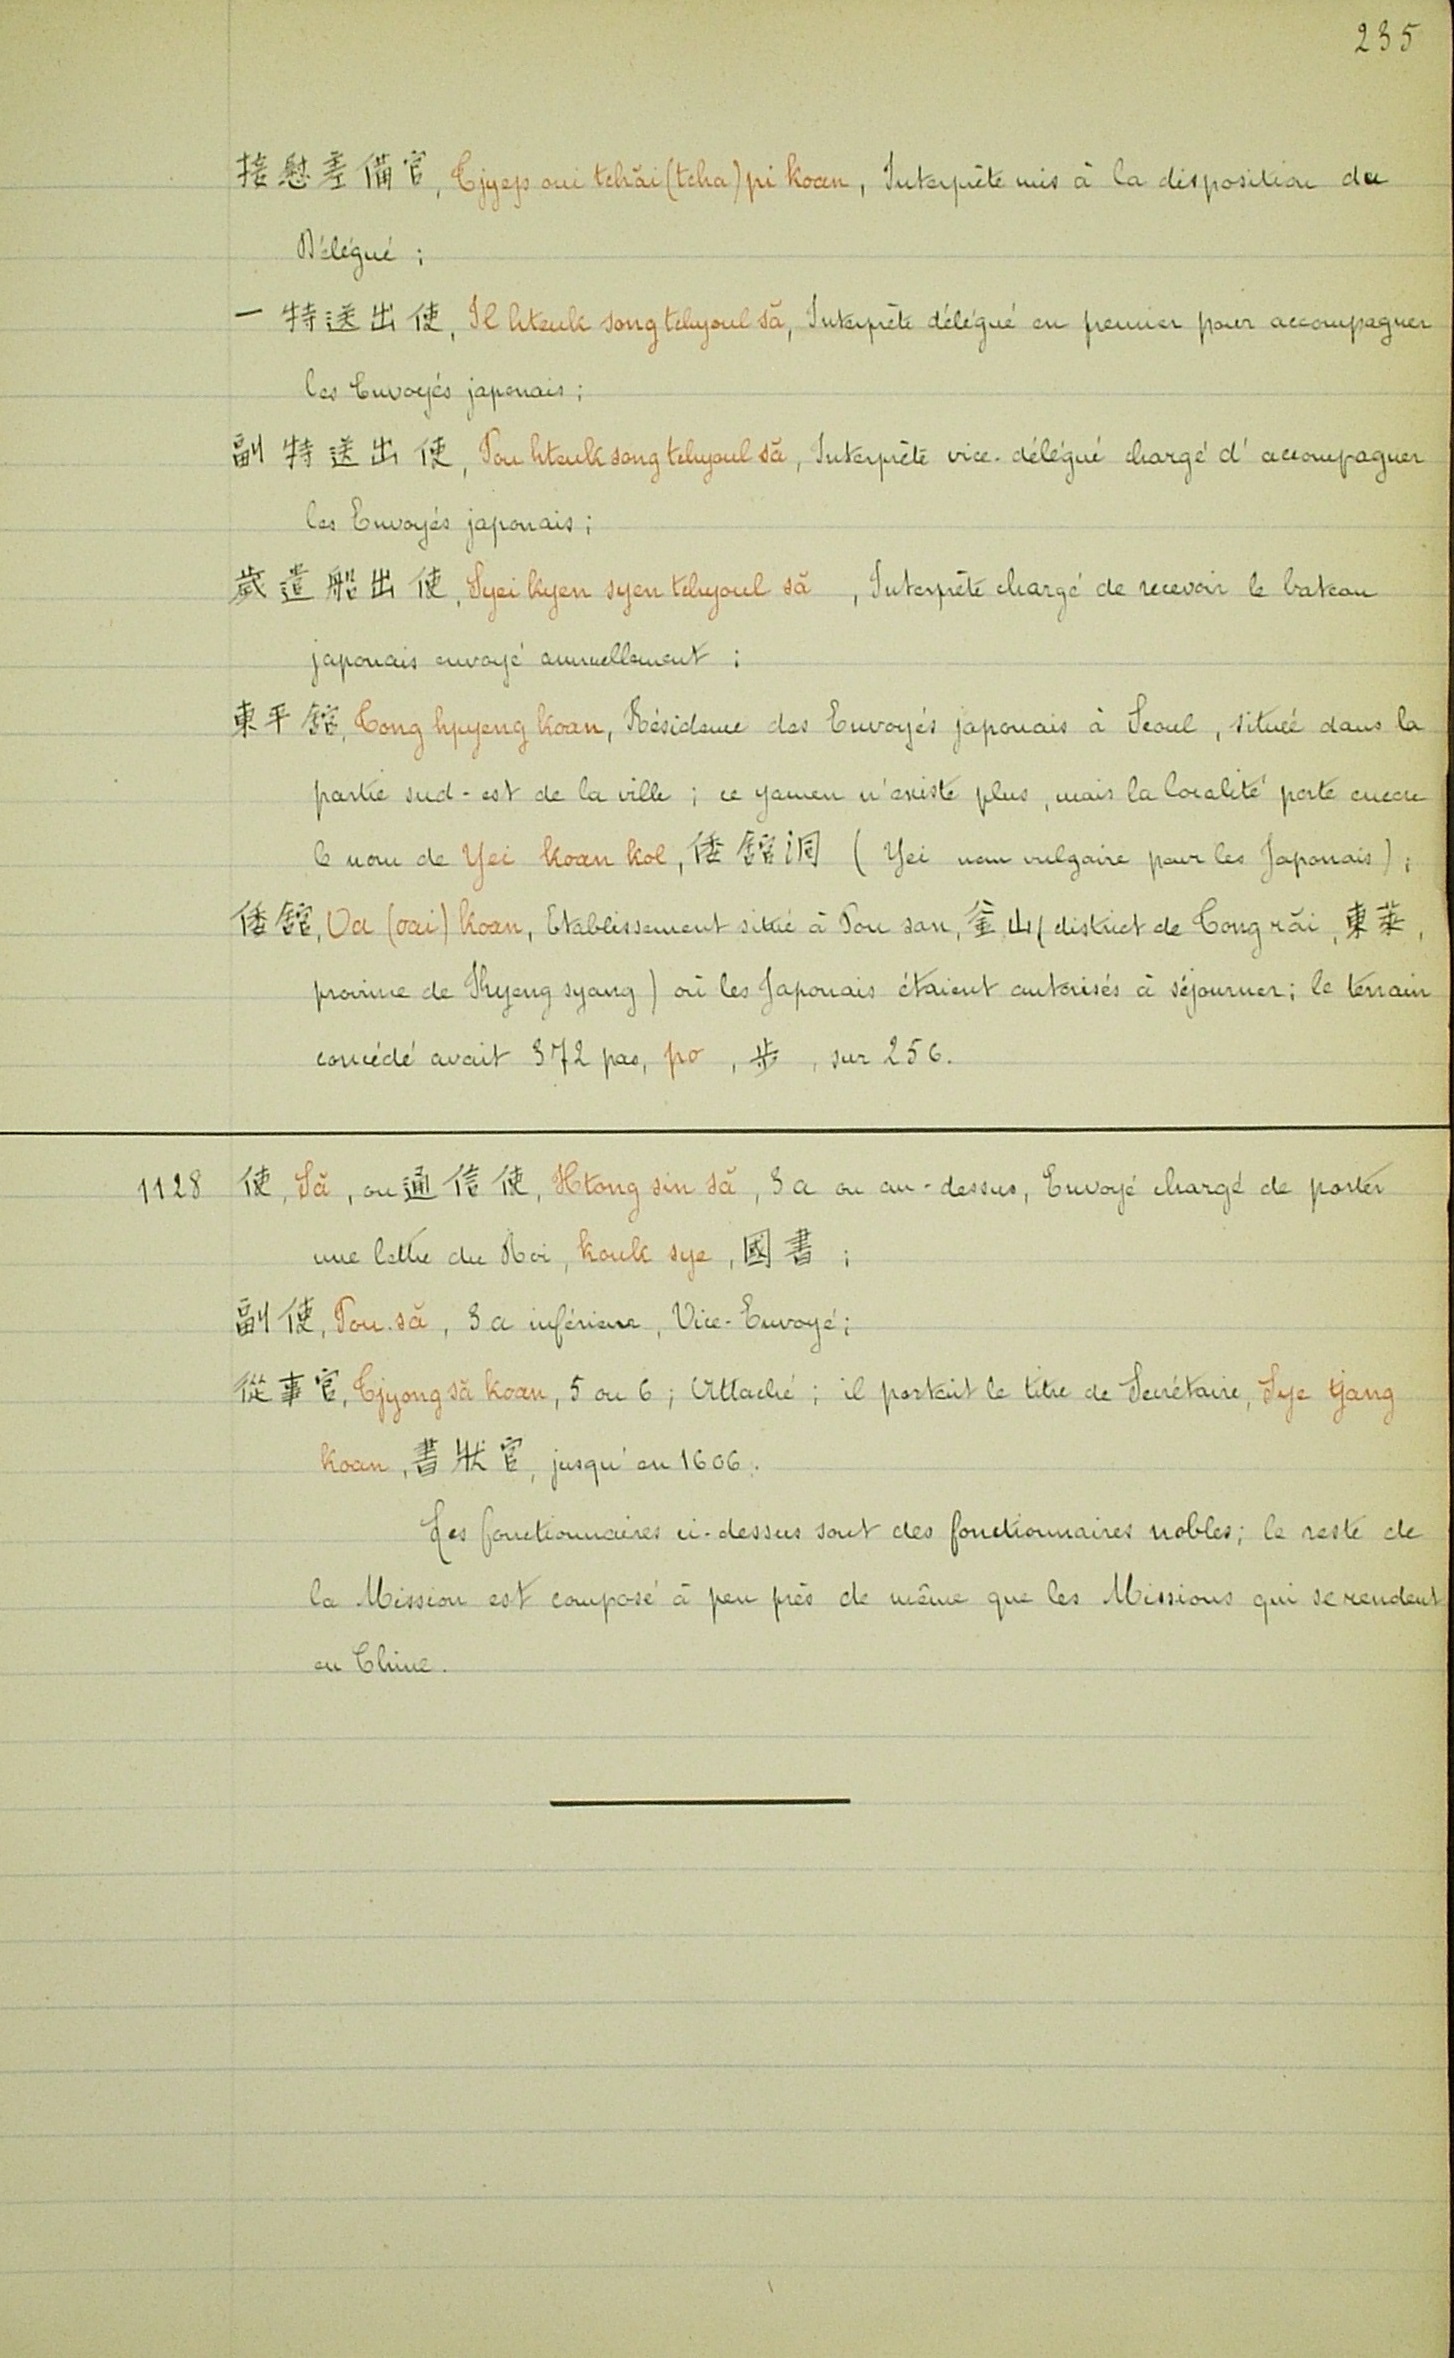 235
接慰差備官, Tjyep oui tchăi (tcha) pi koan, Interprète mis à la disposition du
Délégué ;
一特送出使, Il hteuk song tchyoul să, Interprète délégué en premier pour accompagner
les Envoyés japonais ;
副特送出使, Pou hteuk song tchyoul să, Interprète vice-délégué chargé d'accompagner
les Envoyés japonais ;
歲遣船出使, Syei kyen syen tchyoul să, Interprète chargé de recevoir le bateau
japonais envoyé annuellement ;
東平舘, Tong hpyeng koan, Résidence des Envoyés japonais à Seoul, située dans la
partie sud-est de la ville ; ce yamen n'existe plus, mais la localité porte encore
le nom de Yei koan kol, 倭舘洞 ( Yei nom vulgaire pour les Japonais ) ;
倭舘, Oa (oai) koan, Etablissement situé à Pou san, 釜山 ( district de Tong răi, 東萊,
province de Kyeng syang ) où les Japonais étaient autorisés à séjourner ; le terrain
concédé avait 372 pas, po, 步, sur 256.
1128 使, Să, ou 通信使, Htong sin să, 3a ou au-dessus, Envoyé chargé de porter
une lettre du Roi, kouk sye, 國書 ;
副使, Pou să, 3a inférieur, Vice-Envoyé ;
從事官, Tjyong să koan, 5 ou 6 ; Attaché ; il portait le titre de Secrétaire, Sye tjang
koan, 書狀官, jusqu'en 1606.
Les fonctionnaires ci-dessus sont des fonctionnaires nobles ; le reste de
la Mission est composé à peu près de même que les Missions qui se rendent
en Chine.